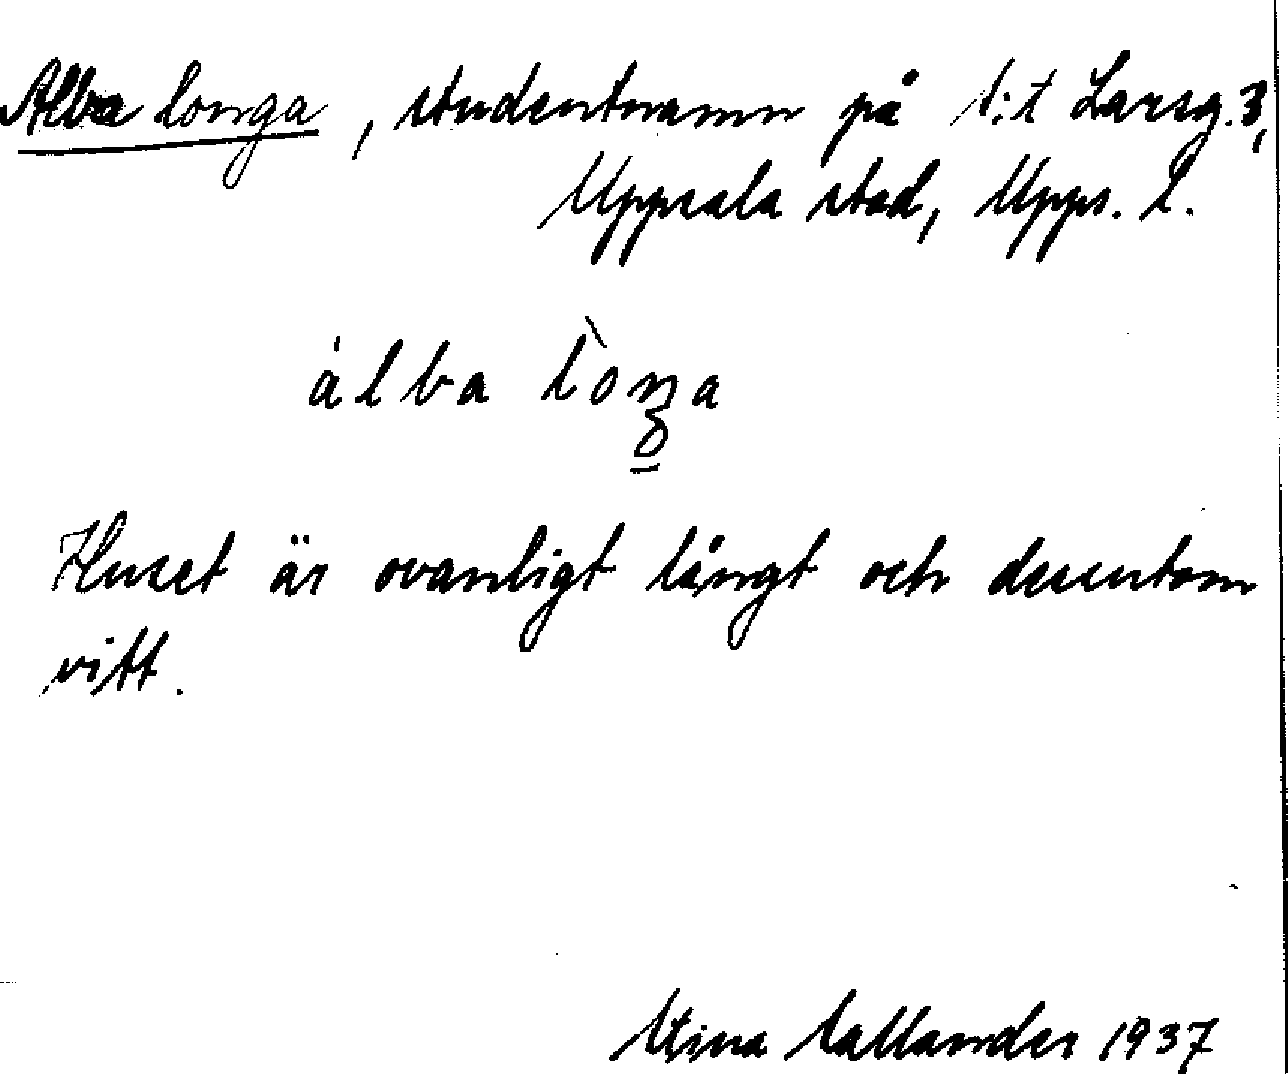 Alba longa, studentnamn på S:t Larsg. 3,
Uppsala stad, Upps. l.
álba lòŋa
Huset är ovanligt långt och dessutom
vitt.
Stina Callander 1937